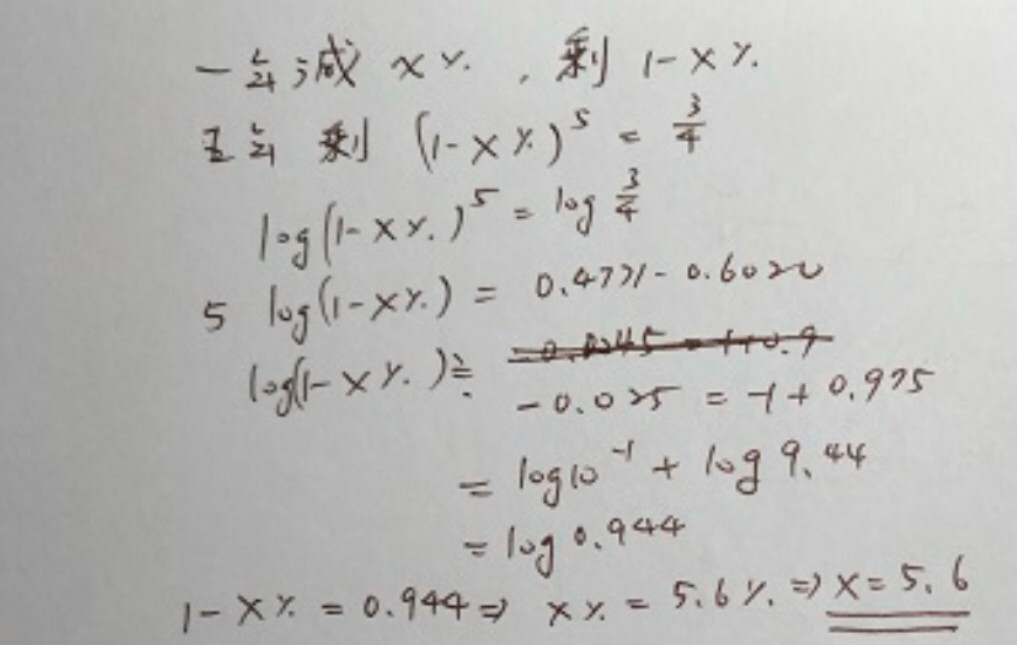 一年减 x%, 剩 1-x%
五年 剩 (1-x%)^5 = 3/4
log(1-x%)^5 = log 3/4
5 log(1-x%) = 0.4771-0.6020
log(1-x%)≒
-0.025 = -1+0.975
= log10^-1 + log 9.44
= log 0.944
1-x% = 0.944 ⇒ x% = 5.6% ⇒ x=5.6